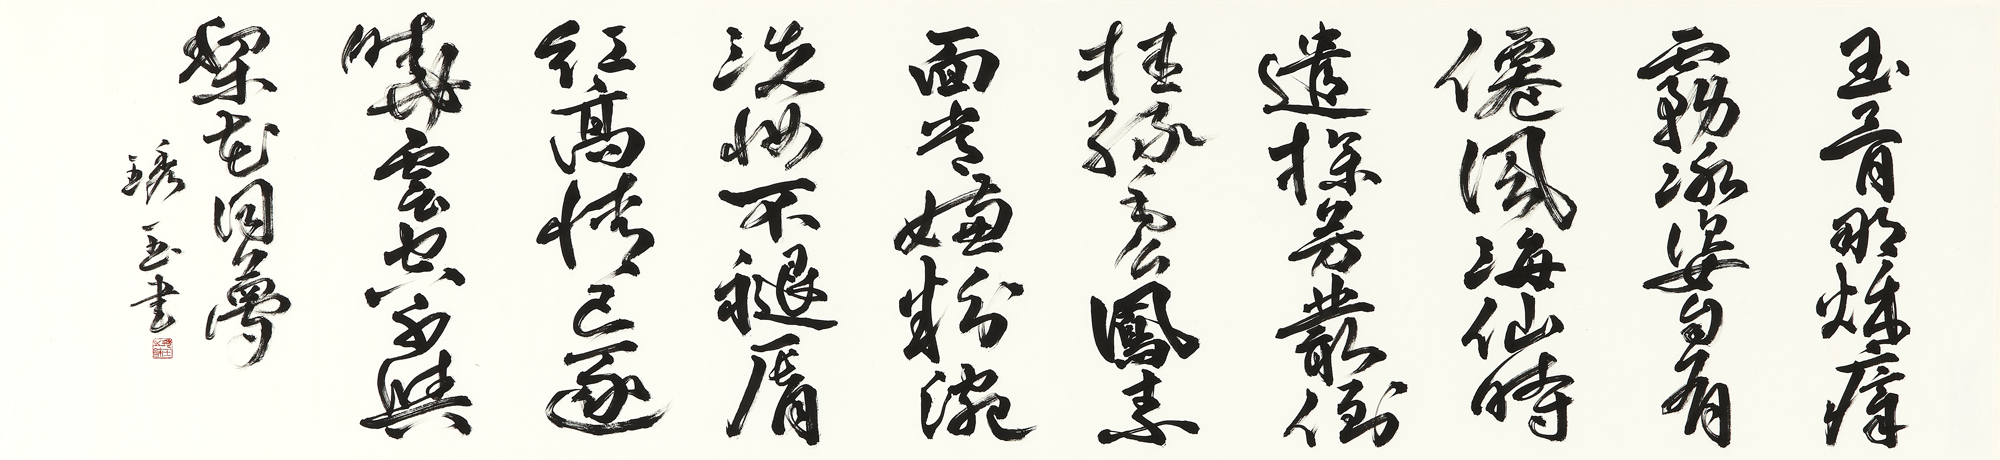 玉骨那愁瘴
霧冰姿自有
僊風海仙時
遣探芳叢倒
挂綠毛么鳳素
面常嫌粉涴
洗妝不褪脣
紅高情已逐
曉雲空不與
梨花同夢
玉書